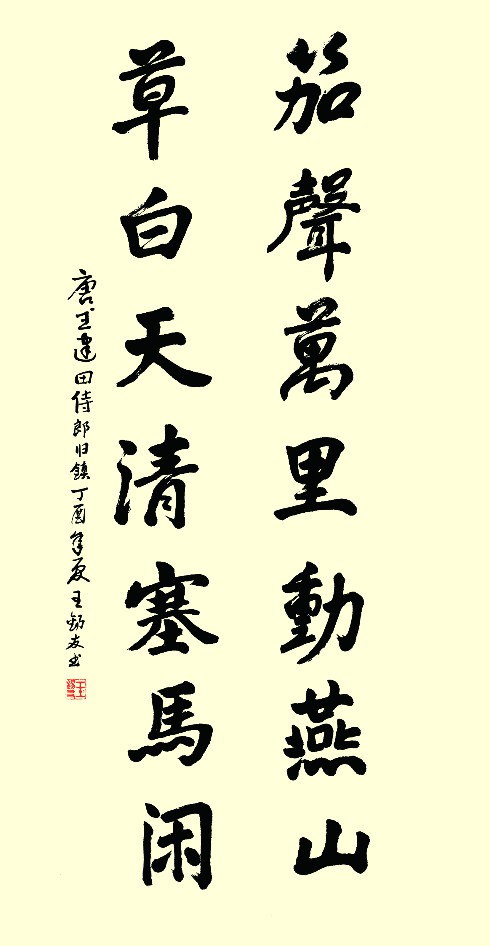 笳聲萬里動燕山
草白天清塞馬闲
唐王建田侍郎归鎮丁酉年夏王友书